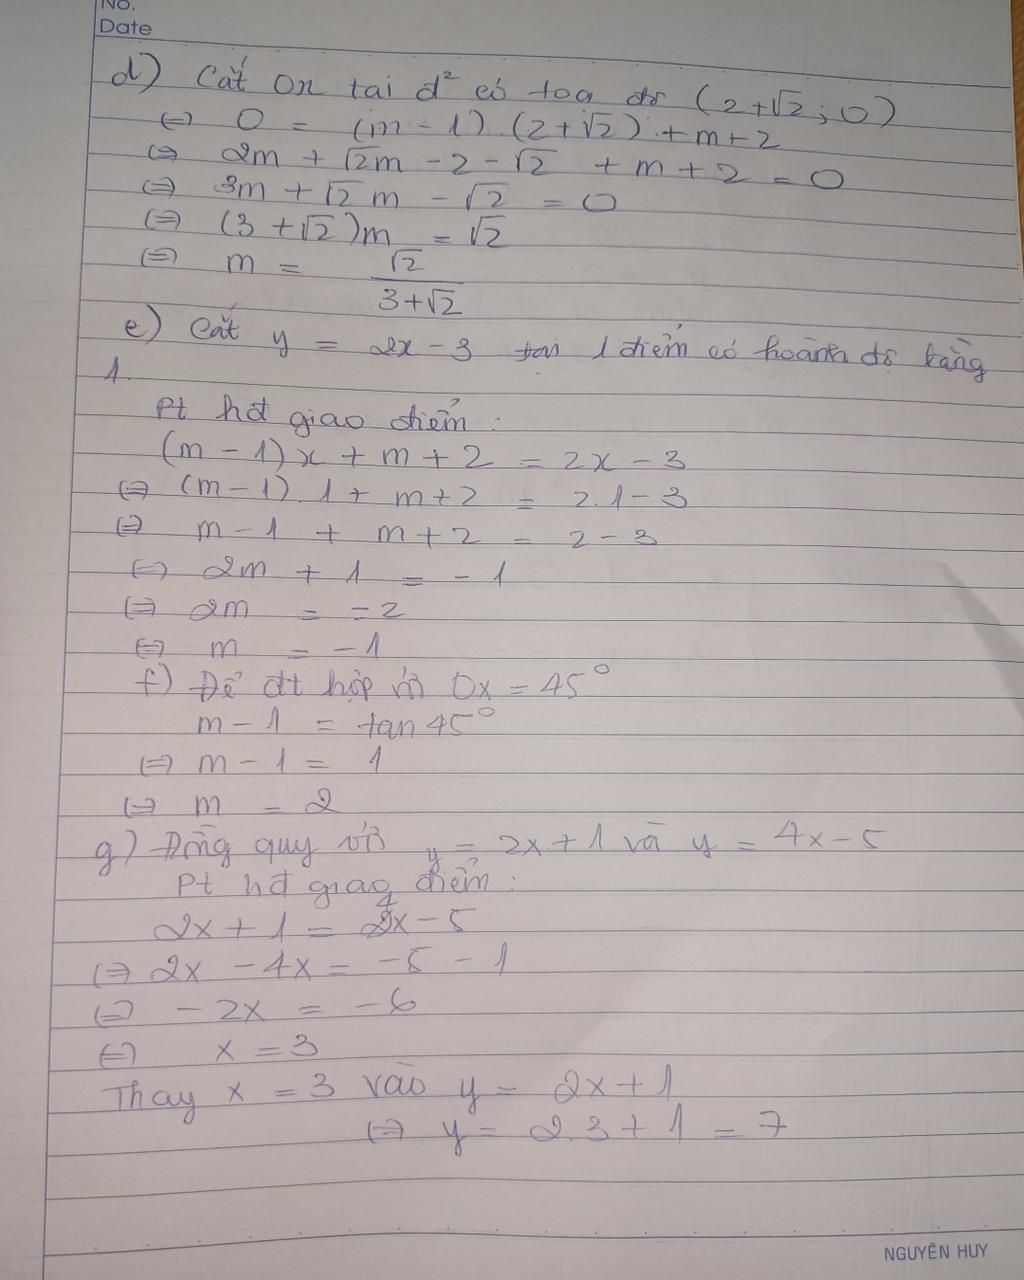 No.
Date
d) Cắt Ox tại đ² có toạ độ (2+√2; 0)
⇔ 0 = (m-1).(2+√2) + m+2
⇔ 2m + √2m - 2 - √2 + m + 2 = 0
⇔ 3m + √2 m - √2 = 0
⇔ (3 + √2)m = √2
⇔ m = √2 / (3+√2)
e) Cắt y = 2x - 3 tại 1 điểm có hoành độ bằng
1.
Pt hđ giao điểm :
(m - 1)x + m + 2 = 2x - 3
⇔ (m-1).1 + m+2 = 2.1 - 3
⇔ m - 1 + m + 2 = 2 - 3
⇔ 2m + 1 = - 1
⇔ 2m = -2
⇔ m = -1
f) Để đt hợp với Ox = 45°
m - 1 = tan 45°
⇔ m - 1 = 1
⇔ m = 2
g) Đồng quy với y = 2x + 1 và y = 4x - 5
Pt hđ giao điểm :
2x + 1 = 4x - 5
⇔ 2x - 4x = -5 - 1
⇔ - 2x = -6
⇔ x = 3
Thay x = 3 vào y = 2x + 1
⇔ y = 2.3 + 1 = 7
NGUYÊN HUY